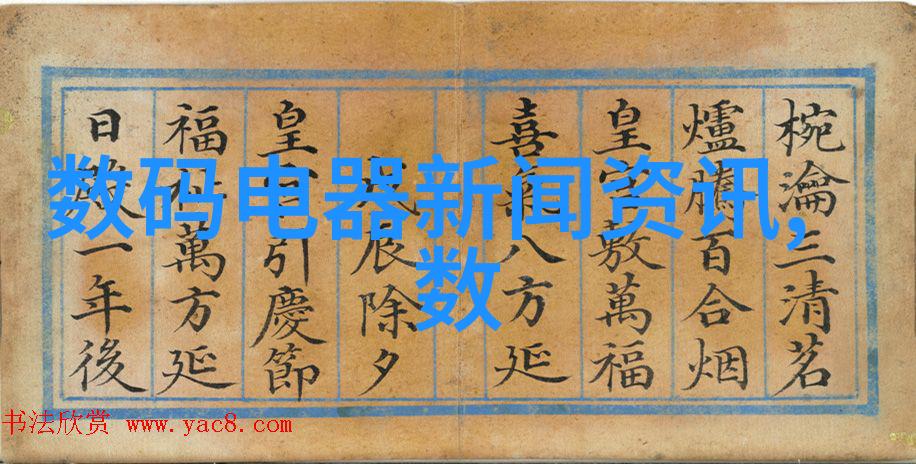 数码电器新闻资讯,
数
椀瀹三清茗
爐騰百合烟
皇敷萬福
喜氣八方延
戊辰除夕
皇引慶節
福萬方延
日一年後
书法欣赏 www.yac8.com